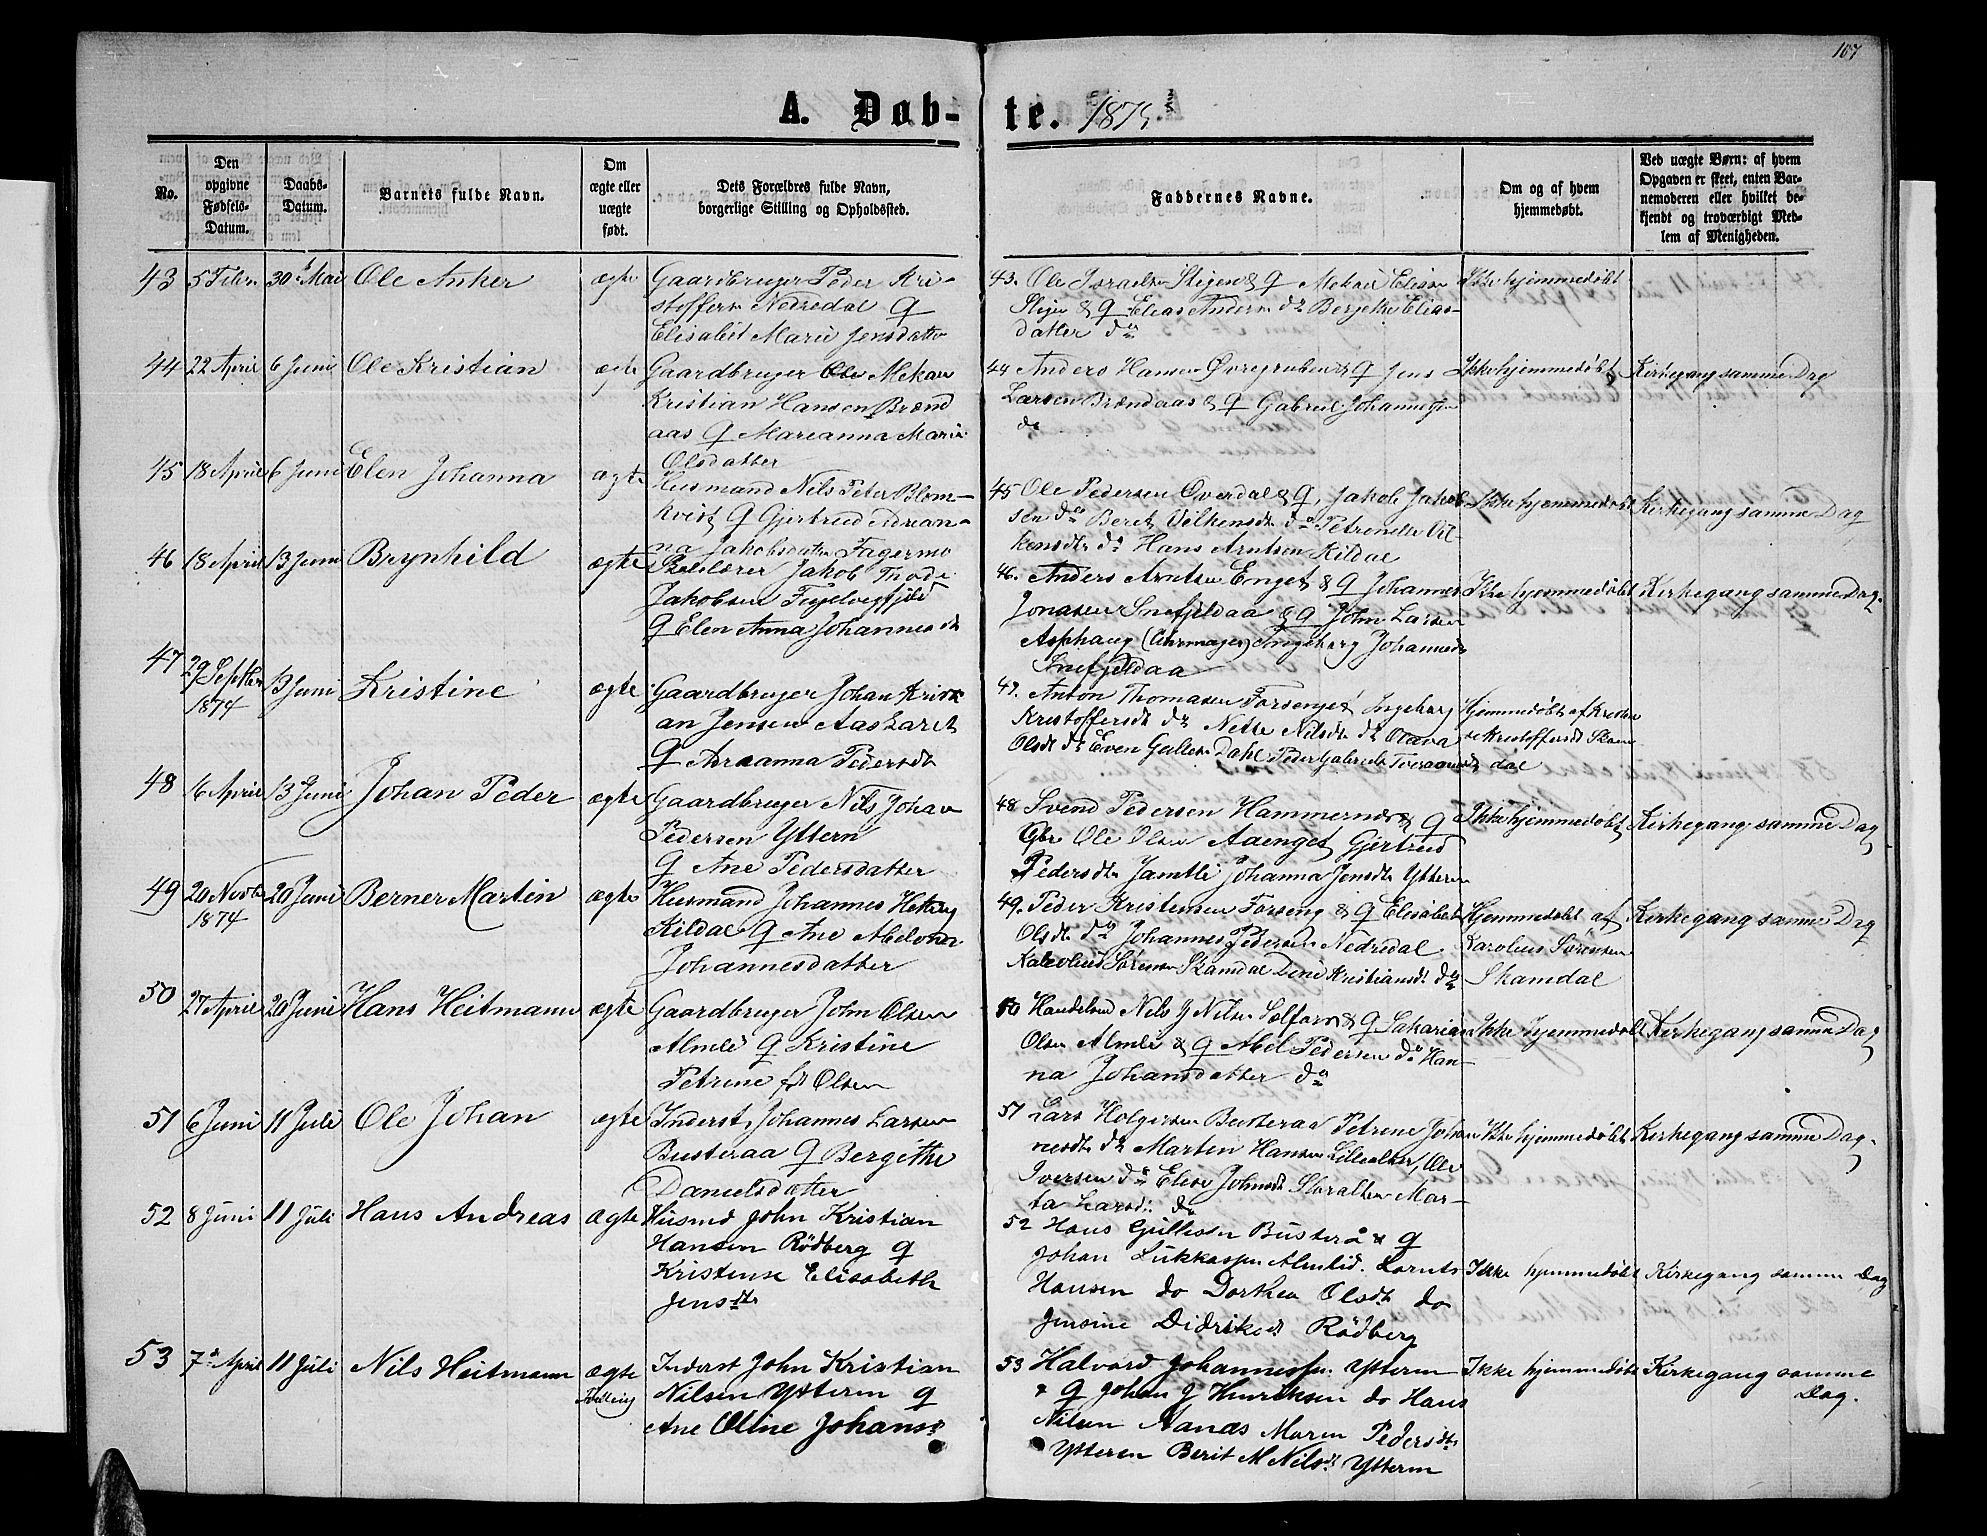 107
A. Døb-te. 1875
No.
Den opgivne Fødsels-Datum.
Daabs-Datum.
Barnets fulde Navn.
Om ægte eller uægte født.
Dets Forældres fulde Navn,
borgerlige Stilling og Opholdssted.
Faddernes Navne.
Om og af hvem
hjemmedøbt.
Ved uægte Børn: af hvem
Opgaven er skeet, enten Bar-
nemoderen eller hvilket be-
kjendt og troværdigt Med-
lem af Menigheden.
43 5 Febr. 30 Mai Ole Anker ægte Gaardbruger Peder Kri-
stoffersn Nedredal &
Elisabet Marie Jensdatter
43. Ole Israelsn & Elias Andersn Eliasdatter do
Ikke hjemmedøbt
44 22 April 6 Juni Ole Kristian ægte Gaardbruger Ole Mekal
Kristian Hansen Brænd
aas & Marianna Maria
Olsdatter
44 Anders Hansen Øvregruben & Jens
Larsen Brændaas & Gabriel Johannessn
do
Ikke hjemmedøbt Kirkegang samme Dag
45 18 April 6 Juni Elen Johanna ægte
Husmand Nils Peter Blom-
kvist & Gjertrud Adrian-
na Jakobsdatr Fagermo
45 Ole Pedersen Overdal & Jakob Jakob
sen do Beret Vilkensdt do Petrenelle Vil-
kensdt do Hans Arntsen Kildal
Ikke hjemmedøbt Kirkegang samme Dag
46 18 April 13 Juni Brynhild ægte Jakob
Jakobsen
& Elen Anna Johannesdt
46. Anders Arntsen Enget & Johannes
Jonasen Snefjeldaa & John Larsen
Asphaug (Uhrmager) Ingeborg Johannesdt
Snefjeldaa
Ikke hjemmedøbt Kirkegang samme Dag.
47 29 Septbr 1874 13 Juni Kristine ægte Gaardbruger Johan Kristi
an Jensen Aaslaret
& Adrianna Pedersdt
47. Anton Thomasen Forseng Ingeborg
Kristoffersdt do Nette Nilsdt do Olava
Olsdt do Even Gullesn Dahl Peder Gabriels
Hjemmedøbt af Kristin
e Kristoffersdt Skam
dal
48 16 April 13 Juni Johan Peder ægte Gaardbruger Nils Johan
Pedersen Yttern
& Ane Pedersdatter
48 Svend Pedersen Hammernes &
Gbr Ole Olsen Aaenget Gjertrud
Pedersdtr Jamtli Johanna Jensdt Ytteren
Ikke hjemmedøbt Kirkegang samme Dag
49 20 Novbr 1874 20 Juni Berner Martin ægte Husmand Johannes
Kildal & Ane
Johannesdatter
49. Peder Kristensen Forseng & Elisabet
Olsdt do Johannes Pedersen Nedredal
Karolius Sørensen Skamdal Dina Kristiansdt do
Hjemmedøbt af
Karolius Sørensen
Skamdal
Kirkegang samme Dag
50 27 April 20 Juni Hans Heitmann ægte Gaardbruger John Olsen
Almli & Kristine
Petrine f. Olsen
50 Handelsmd Nils J Nilsen Selfors & Sakarias
Olsen Almli & Abel Pedersen do Han-
na Johansdatter do
Ikke hjemmedøbt Kirkegang samme Dag
51 6 Juni 11 Juli Ole Johan ægte Inderst Johannes Larsen
Busteraa & Bergithe
Danielsdatter
51 Lars Holgersen Busteraa Petrine Johan
nesdt do Marten Hansen Lillealteren Ole
Iversen do Elise Johnsdt Storalteren Mar-
ta Larsdt do
Ikke hjemmedøbt Kirkegang samme Dag.
52 8 Juni 11 Juli Hans Andreas ægte Husmd John Kristian
Hansen Rödberg &
Kristense Elisabeth
Jensdtr
52 Hans Gullesen Busterå &
Johan Lukkassen Almlid. Lornts
Hansen do Dorthea Olsdt do
Jensine Didriksdt Rödberg
Ikke hjemmedøbt Kirkegang samme Dag
53 7 April 11 Juli Nils Heitmann ægte
Tvilling
Inderst John Kristian
Nilsen Ytteren &
Ane Oline Johansdt
53 Halvard Johannessen Ytteren
& Johan J Henriksen do Hans
Nilsen Aanæs Maren Pedersdtr
Ytteren Berit M Nilsdt Ytteren
Ikke hjemmedøbt Kirkegang samme
Dag.